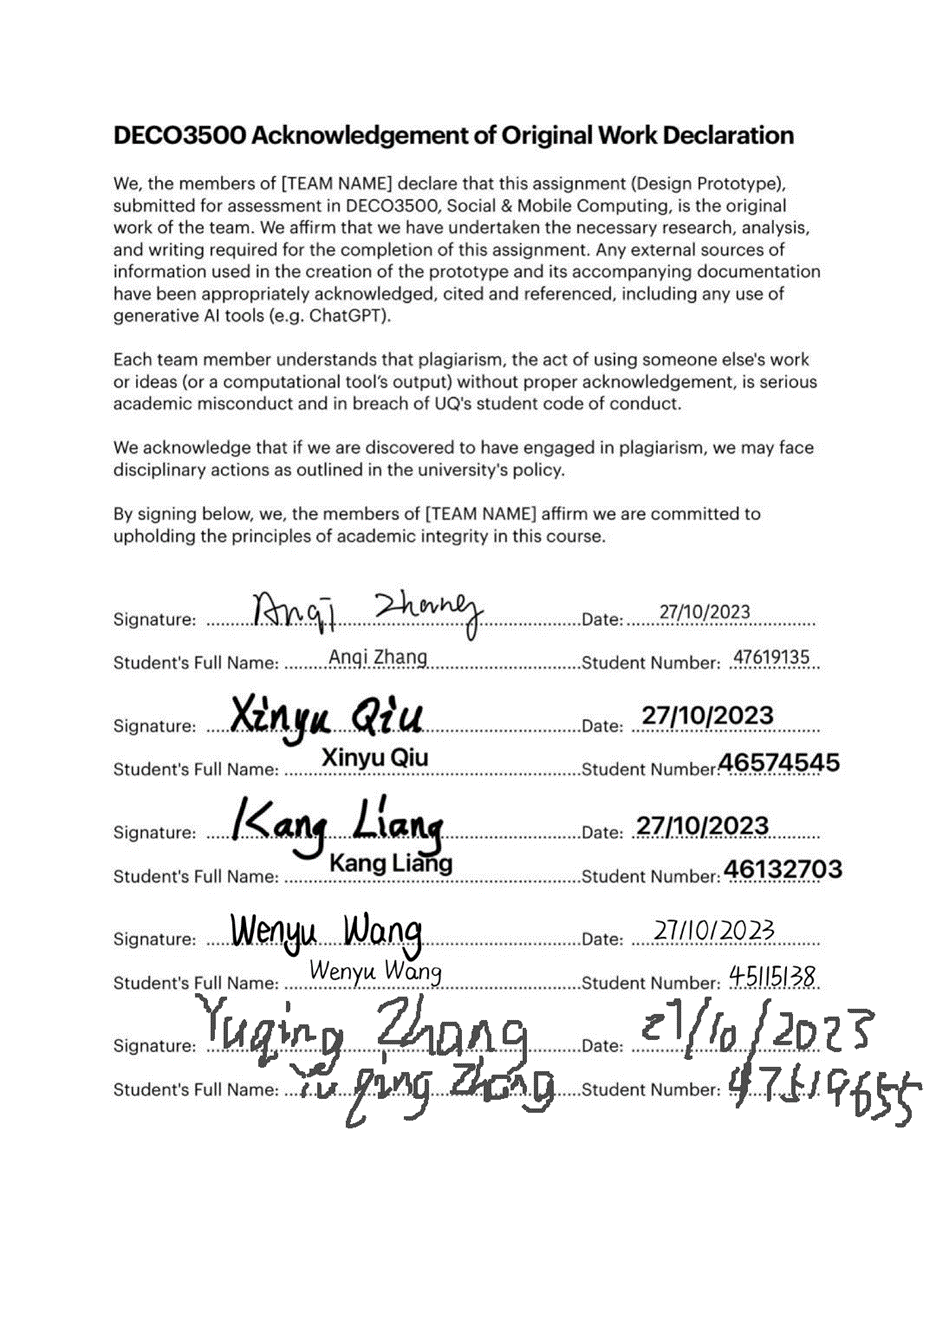 DECO3500 Acknowledgement of Original Work Declaration
We, the members of [TEAM NAME] declare that this assignment (Design Prototype),
submitted for assessment in DECO3500, Social & Mobile Computing, is the original
work of the team. We affirm that we have undertaken the necessary research, analysis,
and writing required for the completion of this assignment. Any external sources of
information used in the creation of the prototype and its accompanying documentation
have been appropriately acknowledged, cited and referenced, including any use of
generative AI tools (e.g. ChatGPT).
Each team member understands that plagiarism, the act of using someone else's work
or ideas (or a computational tool's output) without proper acknowledgement, is serious
academic misconduct and in breach of UQ's student code of conduct.
We acknowledge that if we are discovered to have engaged in plagiarism, we may face
disciplinary actions as outlined in the university's policy.
By signing below, we, the members of [TEAM NAME] affirm we are committed to
upholding the principles of academic integrity in this course.
Signature: Anqi Zhang Date: 27/10/2023
Student's Full Name: Anqi Zhang Student Number: 47619135
Signature: Xinyu Qiu Date: 27/10/2023
Student's Full Name: Xinyu Qiu Student Number: 46574545
Signature: Kang Liang Date: 27/10/2023
Student's Full Name: Kang Liang Student Number: 46132703
Signature: Wenyu Wang Date: 27/10/2023
Student's Full Name: Wenyu Wang Student Number: 45115138
Signature: Yuqing Zhang Date: 27/10/2023
Student's Full Name: Yuqing Zhang Student Number: 47519655